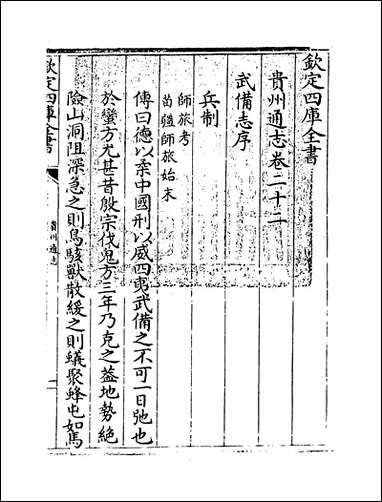 欽定四庫全書
貴州通志卷二十二
武備志序
兵制
師旅考
苗疆師旅始末
傳曰德以柔中國刑以威四夷武備之不可一日弛也
於蠻方尤甚昔殷宗伐鬼方三年乃克之蓋地勢絶
險山洞阻深急之則鳥駭獸散緩之則蟻聚蜂屯如馬
欽定四庫全書
貴州通志
一